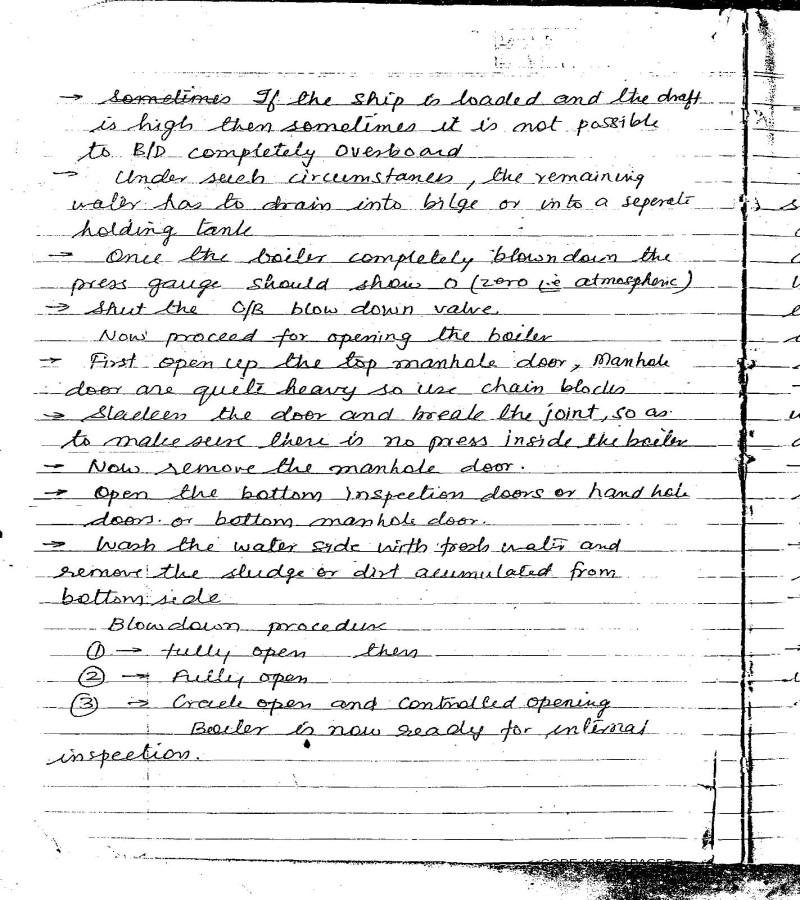 → sometimes If the ship is loaded and the draft
is high then sometimes it is not possible
to B/D completely overboard
→ Under such circumstances, the remaining
water has to drain into bilge or into a seperate
holding tank
→ Once the boiler completely blowndown the
press gauge should show 0 (zero i.e atmospheric)
→ Shut the O/B blow down valve.
Now proceed for opening the boiler
→ First open up the top manhole door, Manhole
door are quite heavy so use chain blocks
→ Slacken the door and break the joint, so as
to make sure there is no press inside the boiler
→ Now remove the manhole door.
→ Open the bottom Inspection doors or hand hole
doors. or bottom manhole door.
→ Wash the water side with fresh water and
remove the sludge or dirt acumulated from
bottom side
Blowdown procedure
① → fully open then
② → Fully open
③ → Crack open and controlled opening
Boiler is now ready for internal
inspection.